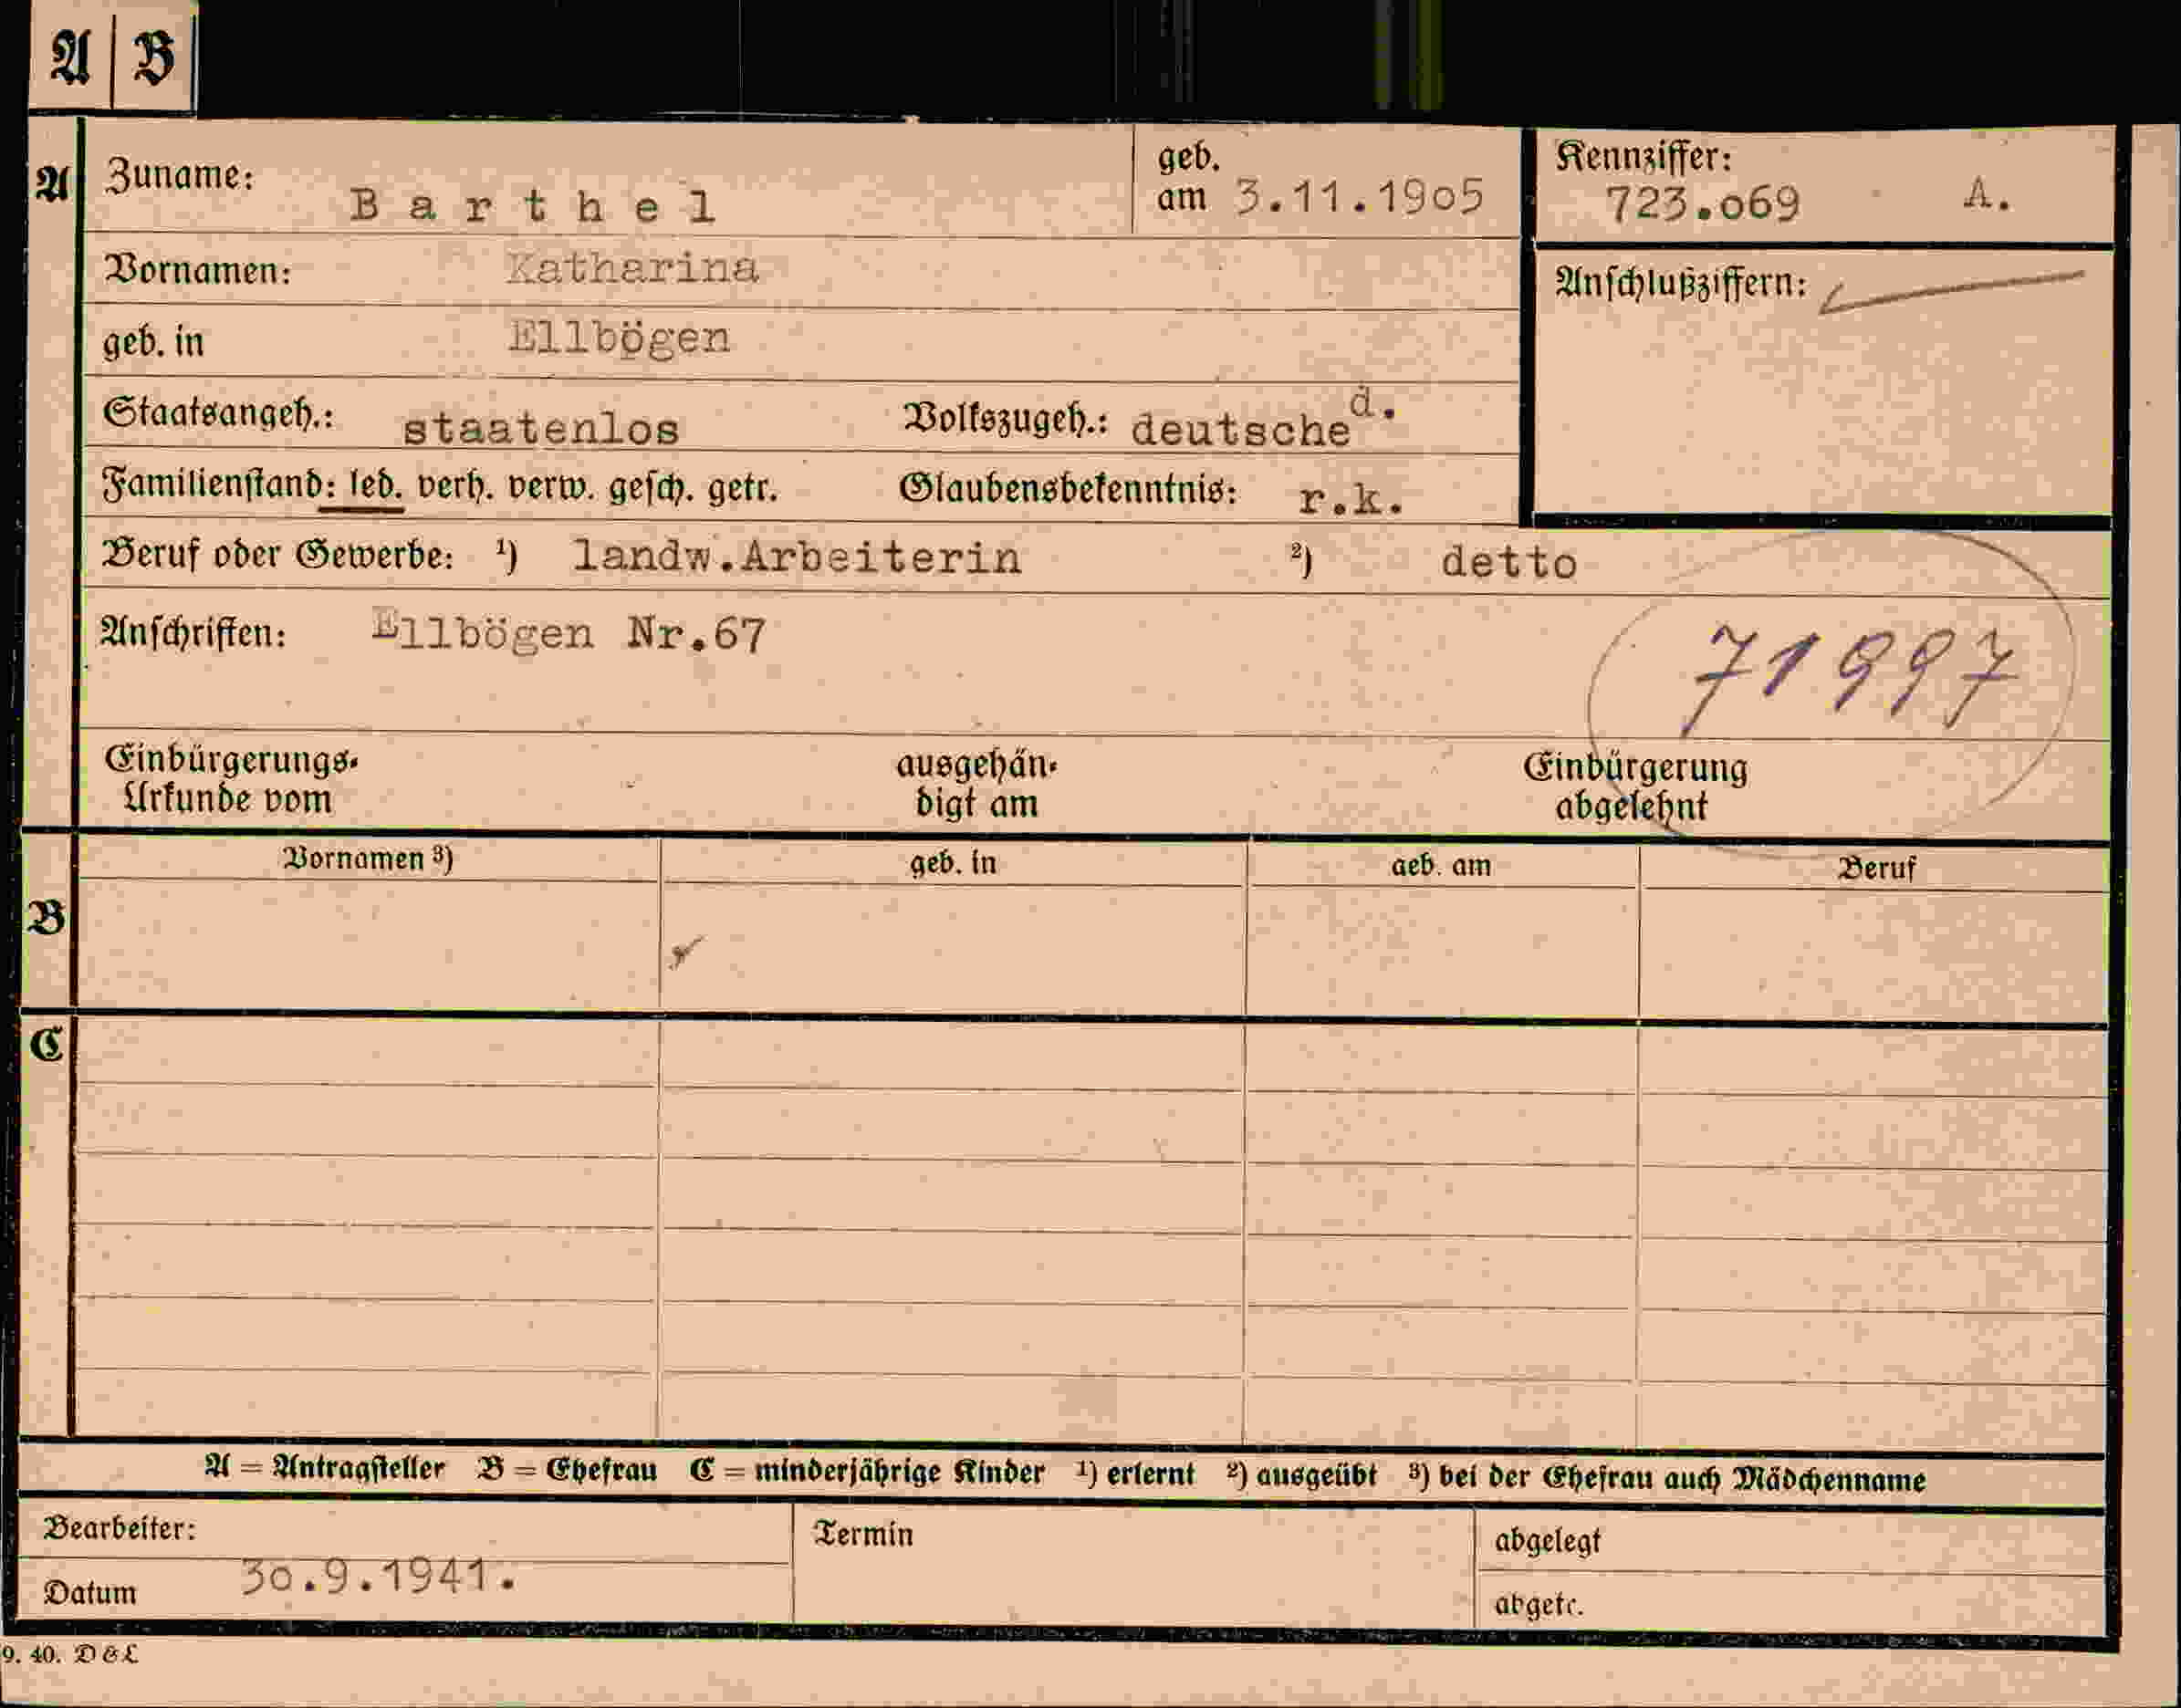 A B
A Zuname: Barthel geb. am 3.11.1905 Kennziffer: 723.069 A.
Vornamen: Katharina
geb. in Ellbögen
Anschlußziffern:
Staatsangeh.: staatenlos Volkszugeh.: deutsche d.
Familienstand: led. verh. verw. gesch. getr. Glaubensbekenntnis: r.k.
Beruf oder Gewerbe: ¹) landw.Arbeiterin ²) detto
Anschriften: Ellbögen Nr.67
71997
Einbürgerungs- ausgehän- Einbürgerung
Urkunde vom digt am abgelehnt
Vornamen ³) geb. in geb. am Beruf
B
C
A = Antragsteller B = Ehefrau C = minderjährige Kinder ¹) erlernt ²) ausgeübt ³) bei der Ehefrau auch Mädchenname
Bearbeiter: Termin abgelegt
Datum 30.9.1941. abgetr.
9. 40. D & L